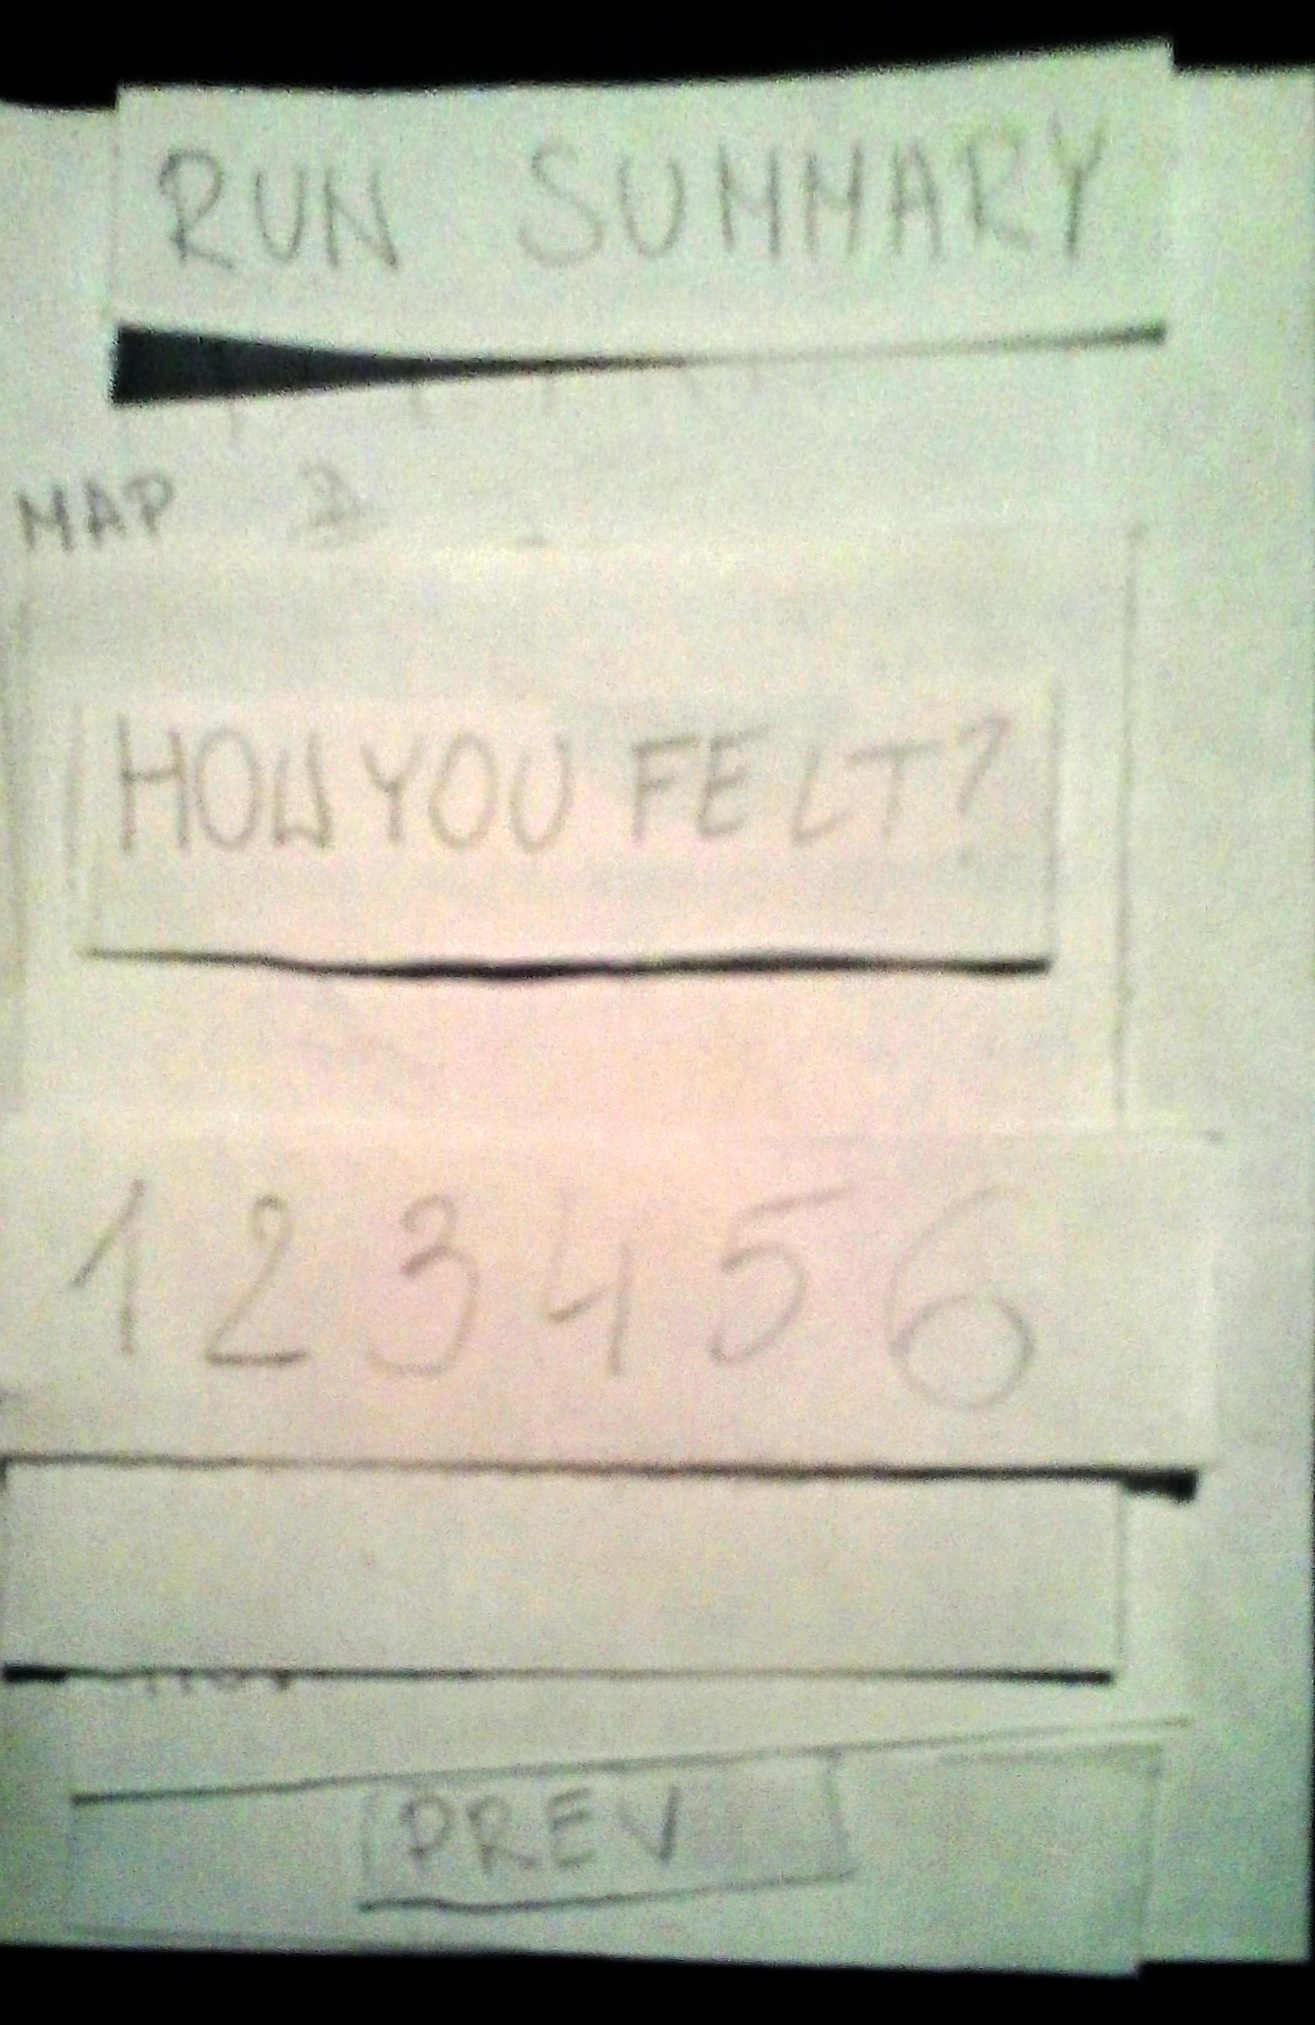 RUN SUMMARY
MAP
HOW YOU FELT?
1 2 3 4 5 6
PREV